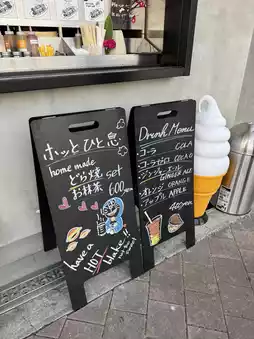 ホッとひと息
home made
どら焼 set
お抹茶 600
have a
HOT
Drink Menu
コーラ COLA
コーラゼロ COLA 0
ジンジャーエール
GINGER ALE
オレンジ ORANGE
アップル APPLE
400